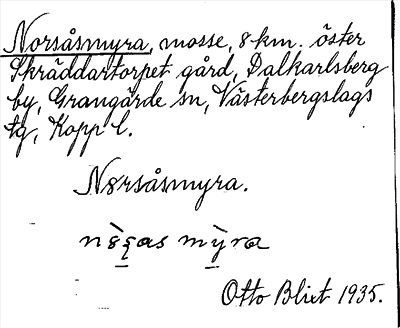 Norsåsmyra, mosse, 8 km. öster
Skräddartorpet gård, Dalkarlsberg
by, Grangärde sn, Västerbergslags
tg, Kopp l.
N8rsåsmyra.
myra
Otto Blixt 1935.